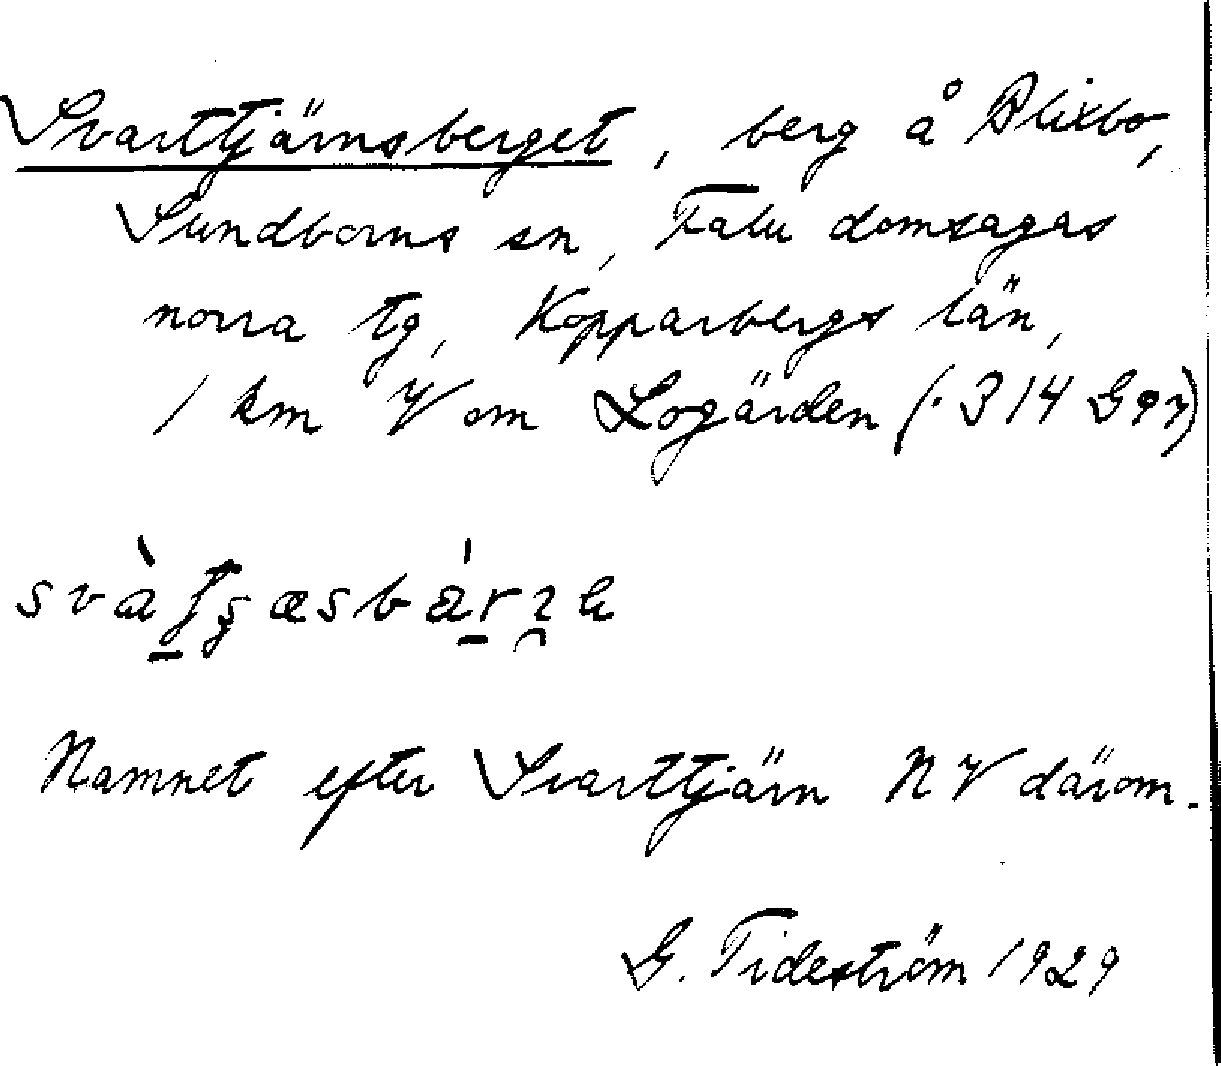 Svarttjärnsberget, berg å Blixbo,
Sundborns sn, Falu domsagas
norra tg, Kopparbergs län,
1 km V om Logärden (. 314 Gen)
Namnet efter Svarttjärn NV därom.
G. Tideström 1929